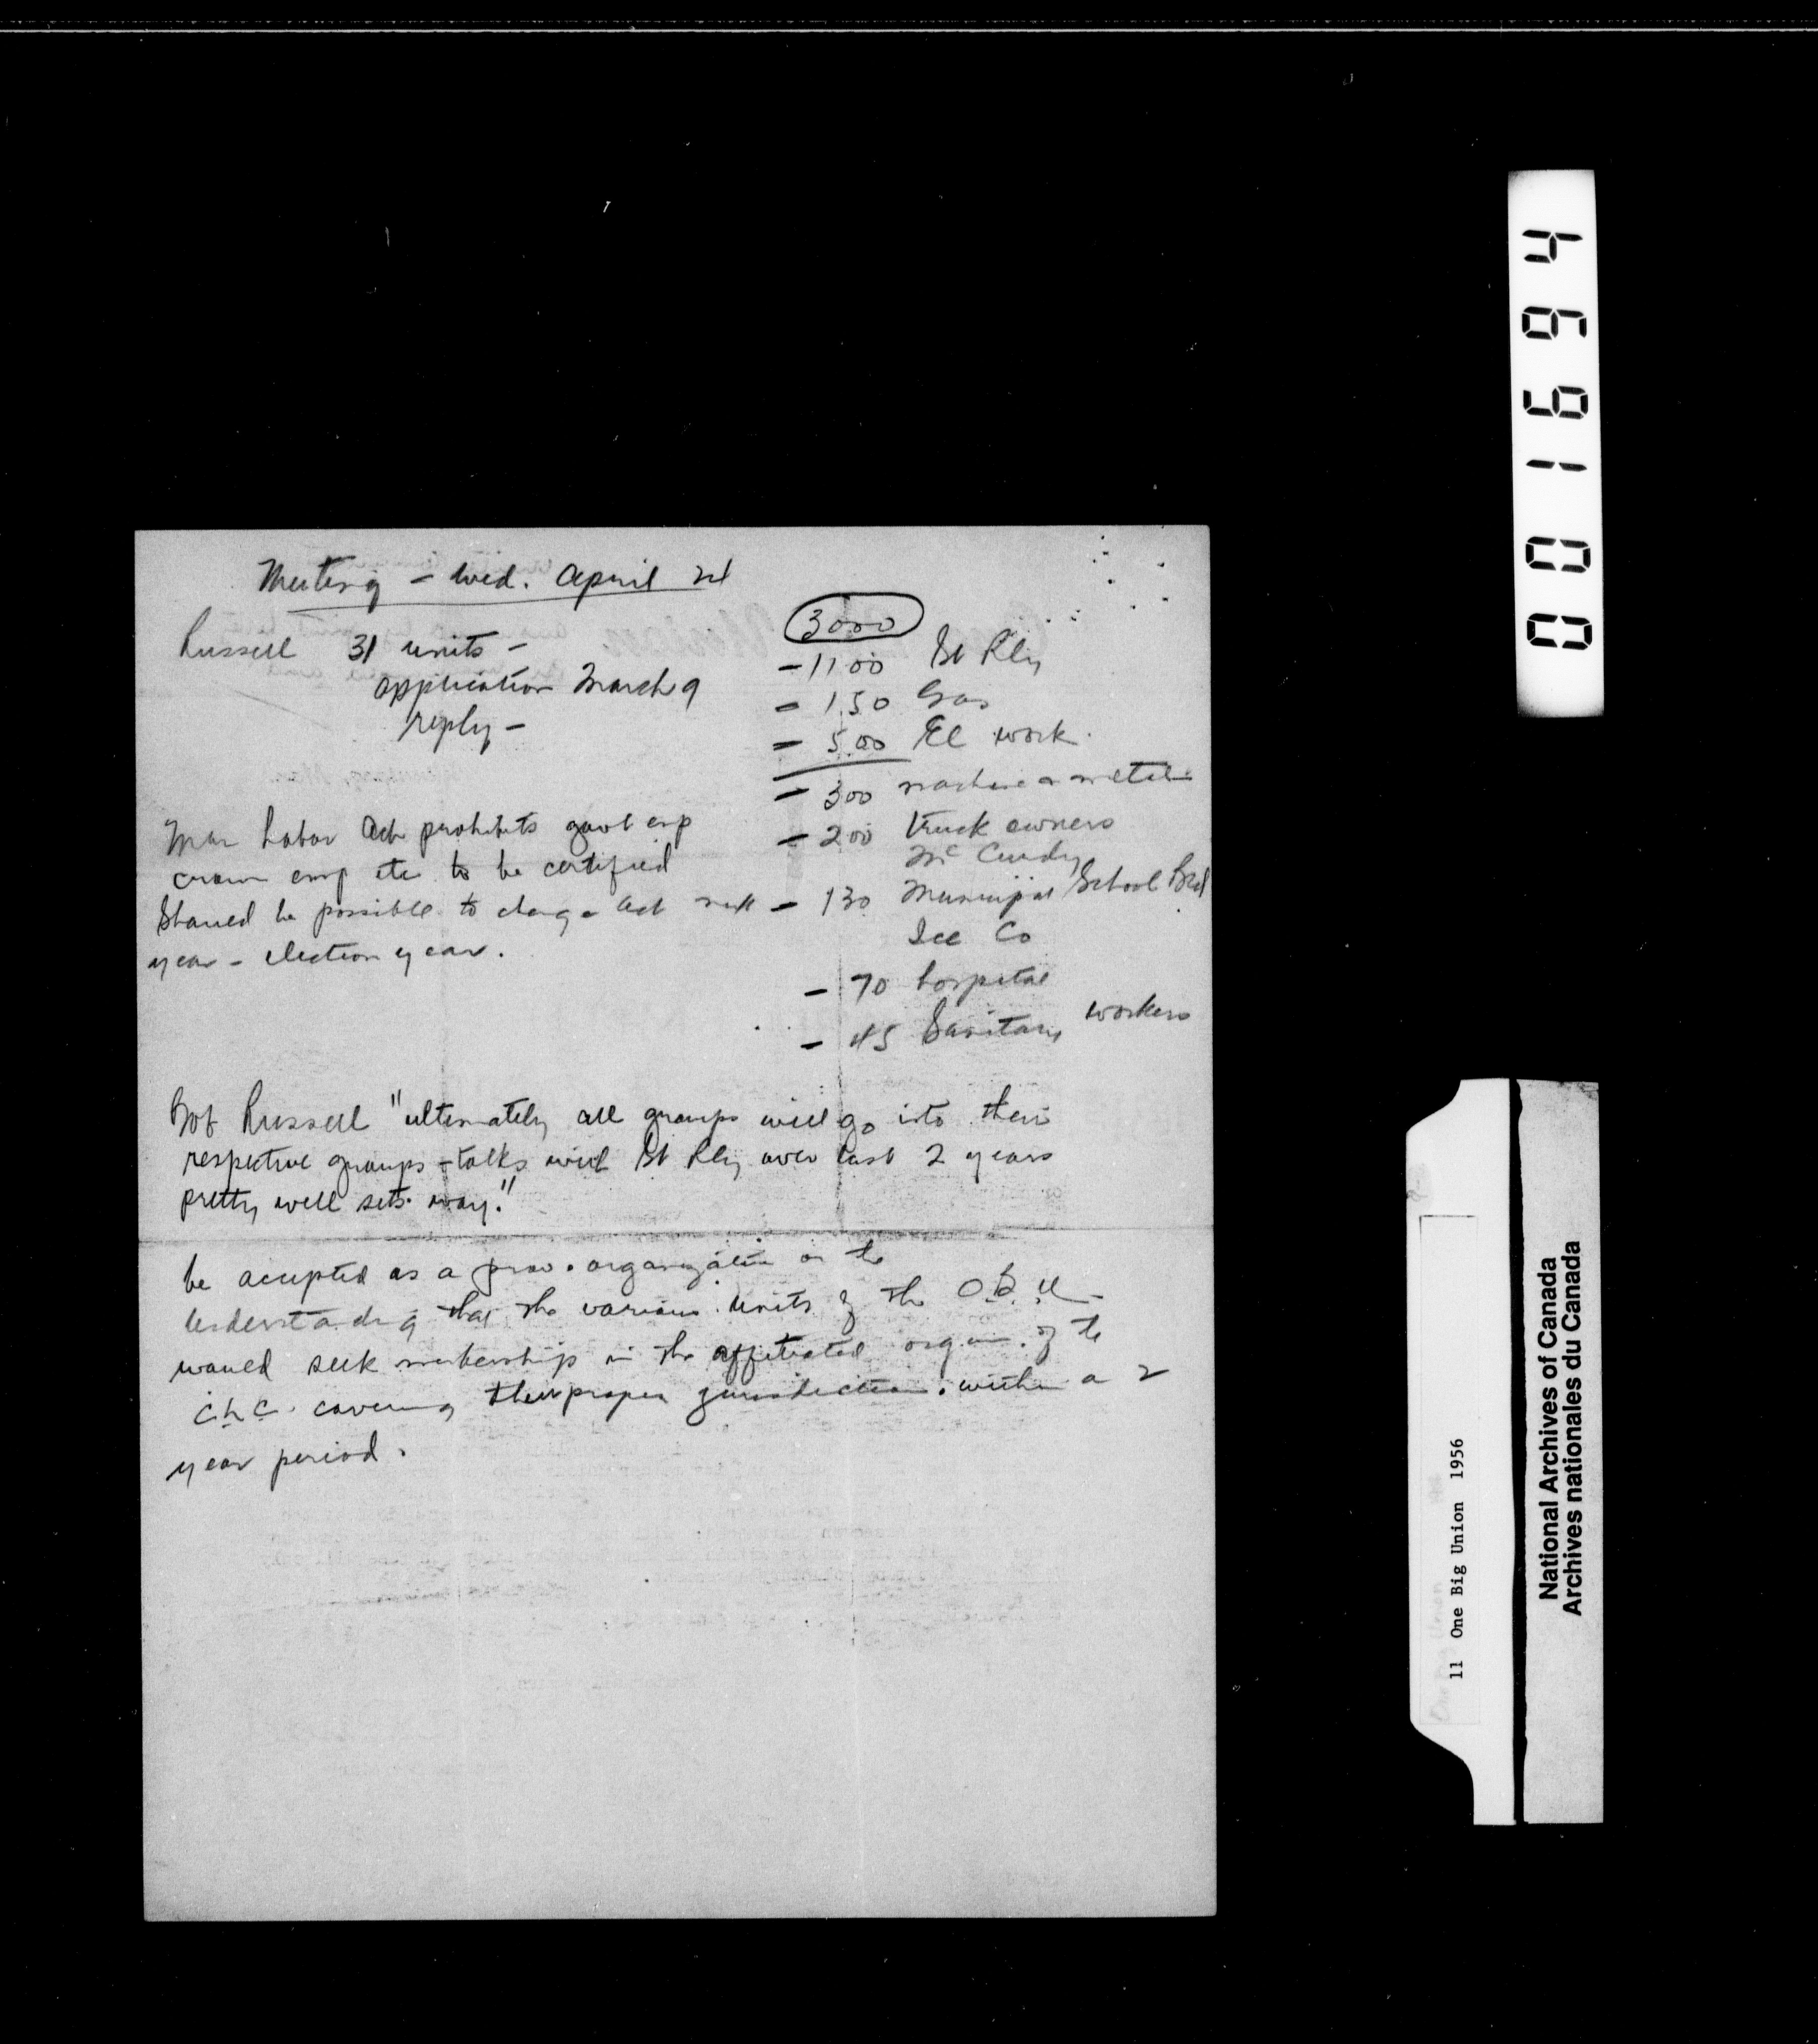 Meeting - Wed. April
3000
Russell 31 units -
application March 9
reply -
- 1100 St Rly
- 150 Gas
- 500 El work
- 300 metal
- 200 truck owners
Mc Curdy
- 130 Municipal School Brd
Ice Co
- 70 hospital
- 45 Sanitary workers
Man Labor Act prohibits govt emp
crown emp etc to be certified
Should be possible to change Act next
year - election year.
Bob Russell "ultimately all groups will go into their
respective groups - talks with St Rly over last 2 years
pretty well sets way."
be accepted as a prov. organization on the
understanding that the various units of the O.B.U.
would seek membership in the affiliated organ. of the
C.L.C. covering their proper jurisdiction. within a 2
year period.
001694
11 One Big Union 1956
National Archives of Canada
Archives nationales du Canada